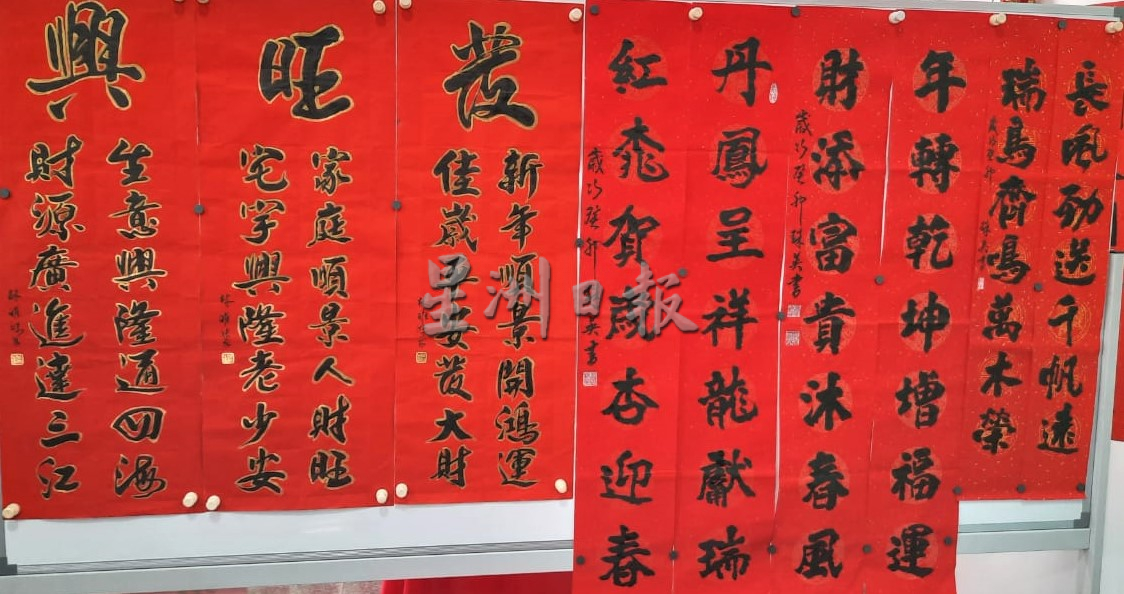 長風勁送千帆遠
瑞鳥齊鳴萬木榮
歲次癸卯
年轉乾坤增福運
財添富貴沐春風
歲次癸卯
英書
丹鳳呈祥龍獻瑞
紅桃賀歲杏迎春
歲次癸卯
英書
發
新年順景開鴻運
佳歲平安發大財
旺
家庭順景人財旺
宅宇興隆老少安
興
生意興隆通四海
財源廣進達三江
星洲日報